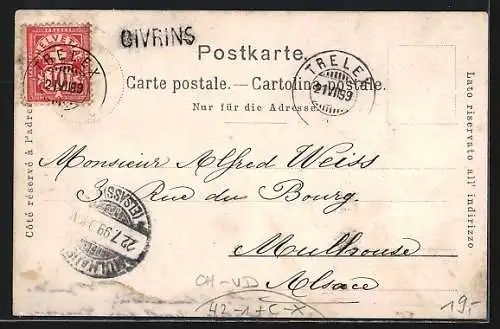 HELVETIA
TRELEX
21 VII 99
GIVRINS
Postkarte.
Carte postale. — Cartolina postale.
Nur für die Adresse.
TRELEX
21 VII 99
Côté réservé à l'adresse
Lato riservato all' indirizzo
Monsieur Alfred Weiss
3 Rue du Bourg.
Mulhouse
Alsace
(ELSASS)
22.7.99
CH-VD
42-1+C-X
19,-